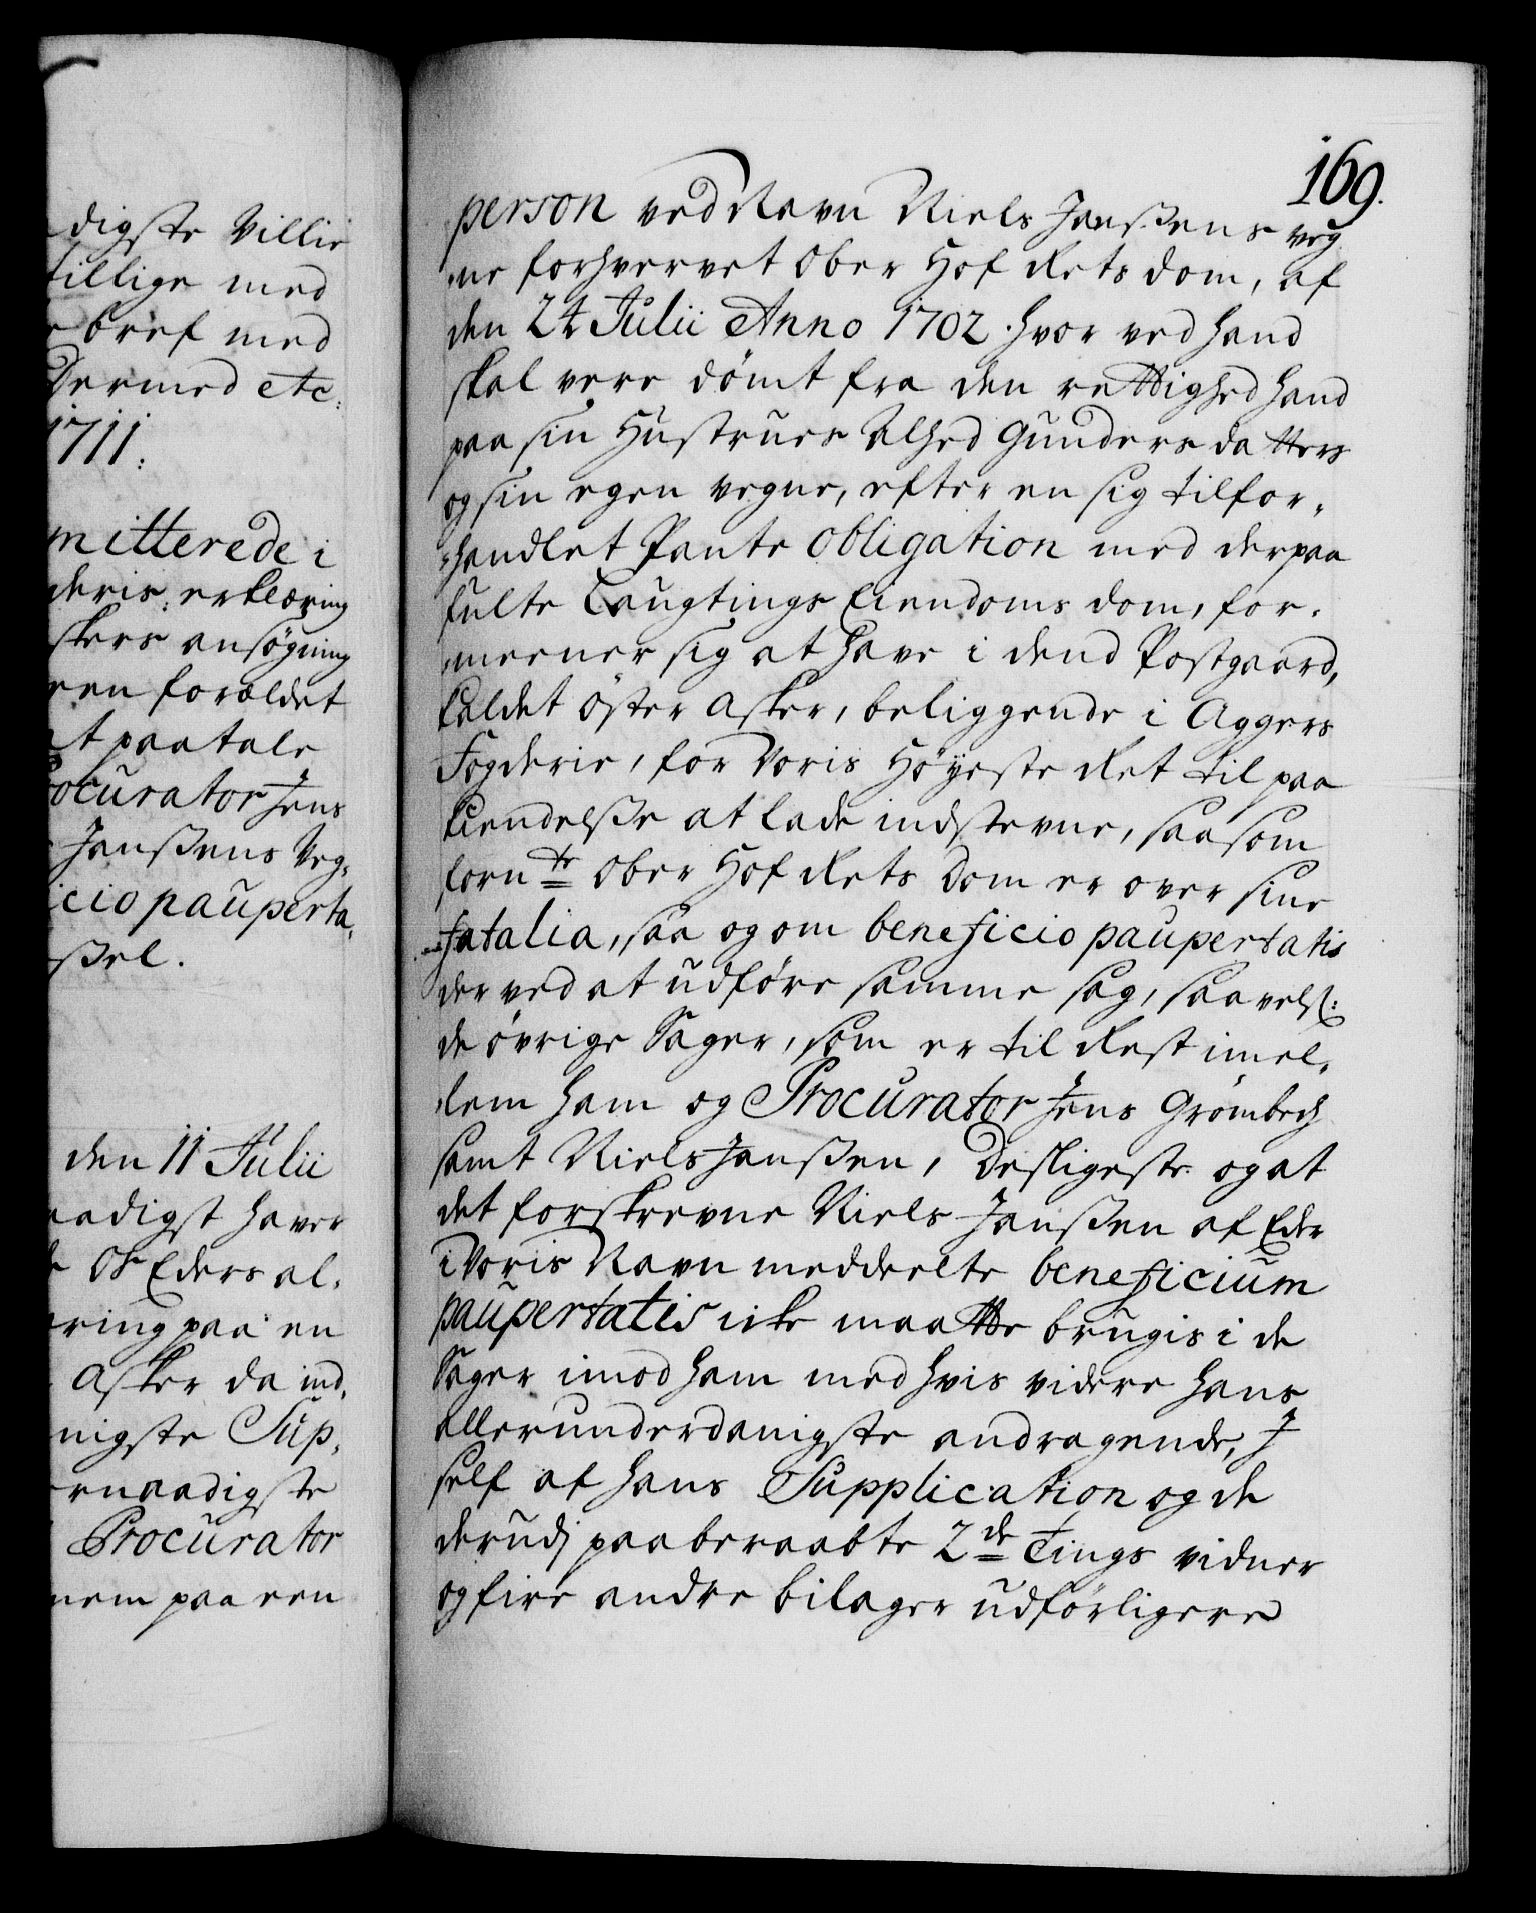 digste Villie
tillige med
bref med
Dermed etc:
1711:
mitterede i
deris erklæring
skers ansøgning
een forældet
at paatale
ocurator Jens
Janssens Veg,
icio pauperta,
ssel.
den 11 Julii
aadigst haver
Os Eders al,
ring paa en
Asker da ind,
nigste Sup,
rnaadigste
Procurator
nem paa een
169.
person ved Navn Niels Janssens veg
,ne forhvervet Ober Hof Rets dom, af
den 24 Julii Anno 1702. hvor ved hand
skal vere dömt fra den rettighed hand
paa sin Hustrues Alhed Gunders datters
og sin egen vegne, efter en sig tilfor,
,handlet Pante Obligation med derpaa
fulte Laugtings Eiendoms dom, for,
,meener sig at have i dend Postgaard,
kaldet Öster Asker, beliggende i Aggers
Fogderie, for Voris Höyeste Ret til paa
kiendelsse at lade indstevne, saasom
fornte Ober Hof Rets Dom er over sine
fatalia, saa og om beneficio paupertatis
der ved at udföre samme sag, saavels:
de övrige Sager, som er til Rest imel,
,lem ham og Procurator Jens Grömbech
samt Niels Janssen, Desligeste og at
det forskrevne Niels Janssen af Eder
i Voris Navn meddeelte beneficium
paupertatis icke maatte brugis i de
Sager imod ham med hvis videre hans
allerunderdanigste andragende, I
self af hans Supplication og de
derudj paaberaabte 2de Tings vidner
og fire andre bilager udförligere